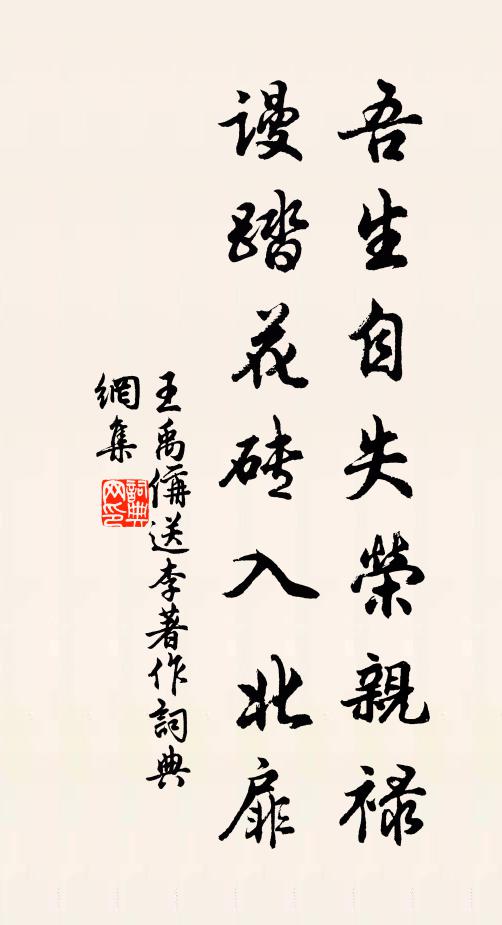 吾生自失榮親祿
谩踏花砖入北扉
王禹偁送李著作詞典
網集
詞典
网印